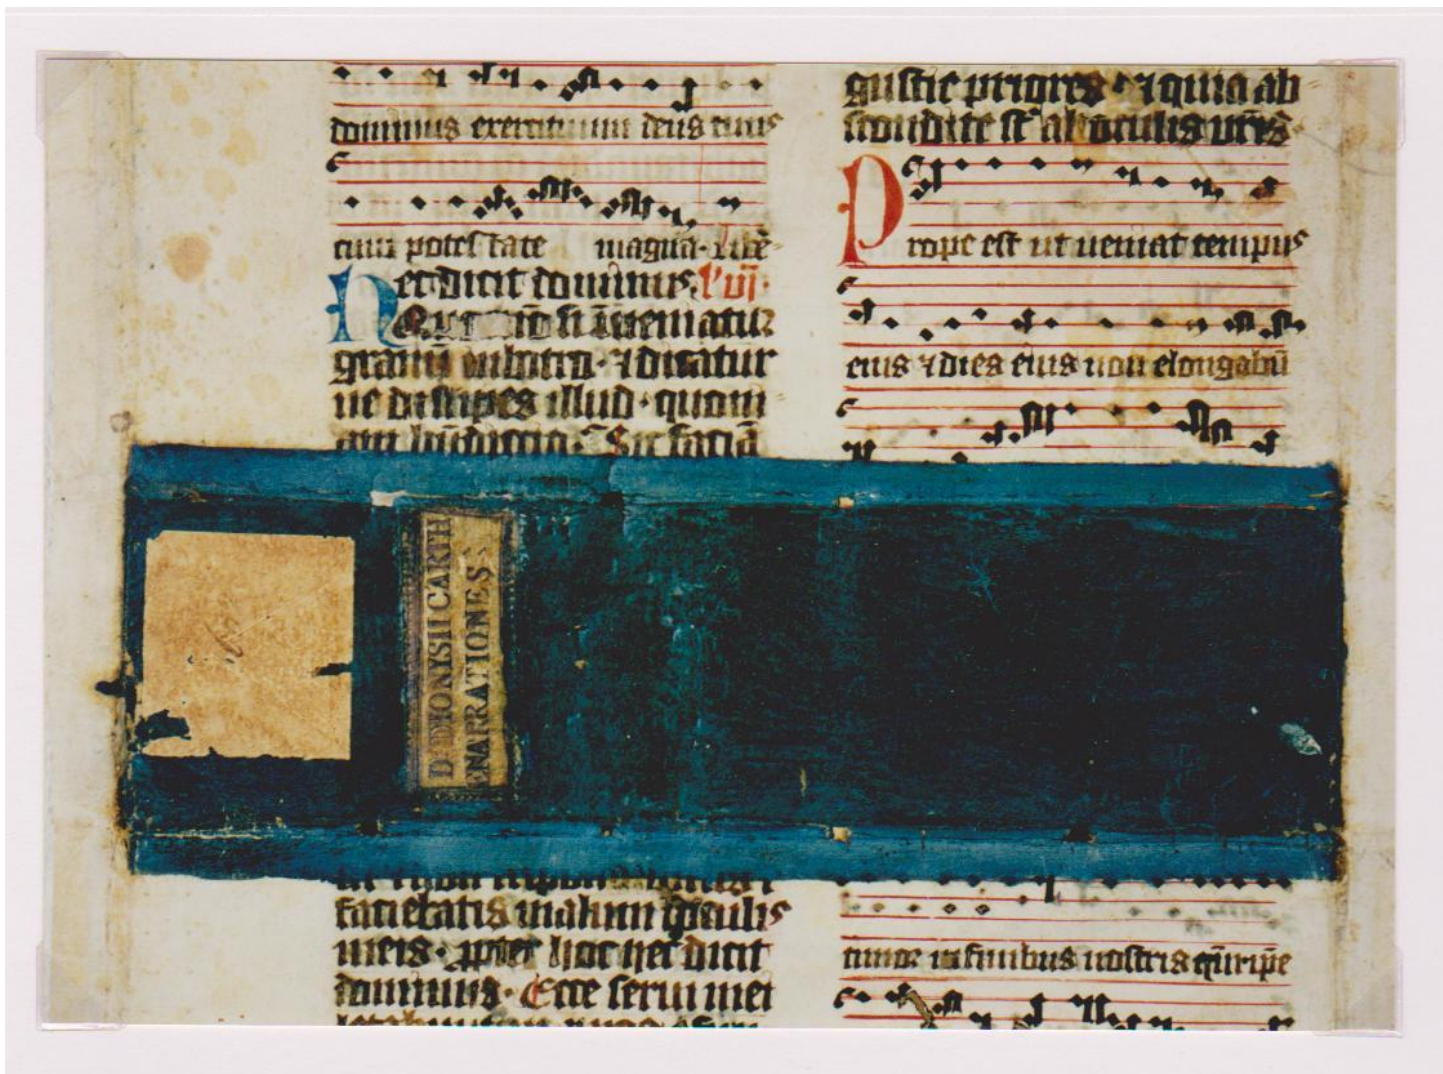 dominus exercituum deus tuus
cum potestate magna.
hec dicit dominus.
si inueniatur
granū in botro. ⁊ dicatur
ne dissipes illud. quoni
am Sic faciā
D. DIONYSII CARTH
ENARRATIONES
faciebatis malum oculis
meis. ppter hoc hec dicit
dominus. Ecce serui mei
gustie priores. ⁊ quia ab
scondite st̄ ab oculis
Prope est ut ueniat tempus
eius ⁊ dies eius non elongabū
timor in finibus nostris